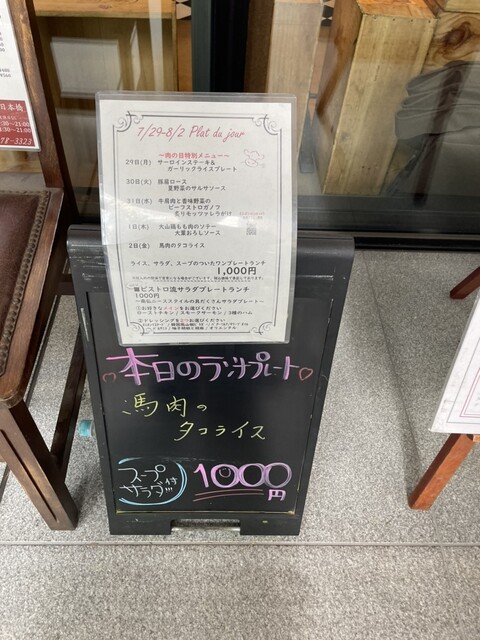 日本橋
7/29-8/2 Plat du jour
～肉の日特別メニュー～
29日(月) サーロインステーキ&
ガーリックライスプレート
30日(火) 豚肩ロース
夏野菜のサルサソース
31日(水) 牛肩肉と香味野菜の
ビーフストロガノフ
炙りモッツァレラがけ
1日(木) 大山鶏もも肉のソテー
大葉おろしソース
2日(金) 馬肉のタコライス
ライス、サラダ、スープのついたワンプレートランチ
1,000円
ビストロ流サラダプレートランチ
1000円
①お好きなメインをお選びください
ローストチキン / スモークサーモン / 3種のハム
②ドレッシングを2つお選びください
本日のランチプレート
馬肉の
タコライス
スープ
サラダ付!!!
1000円